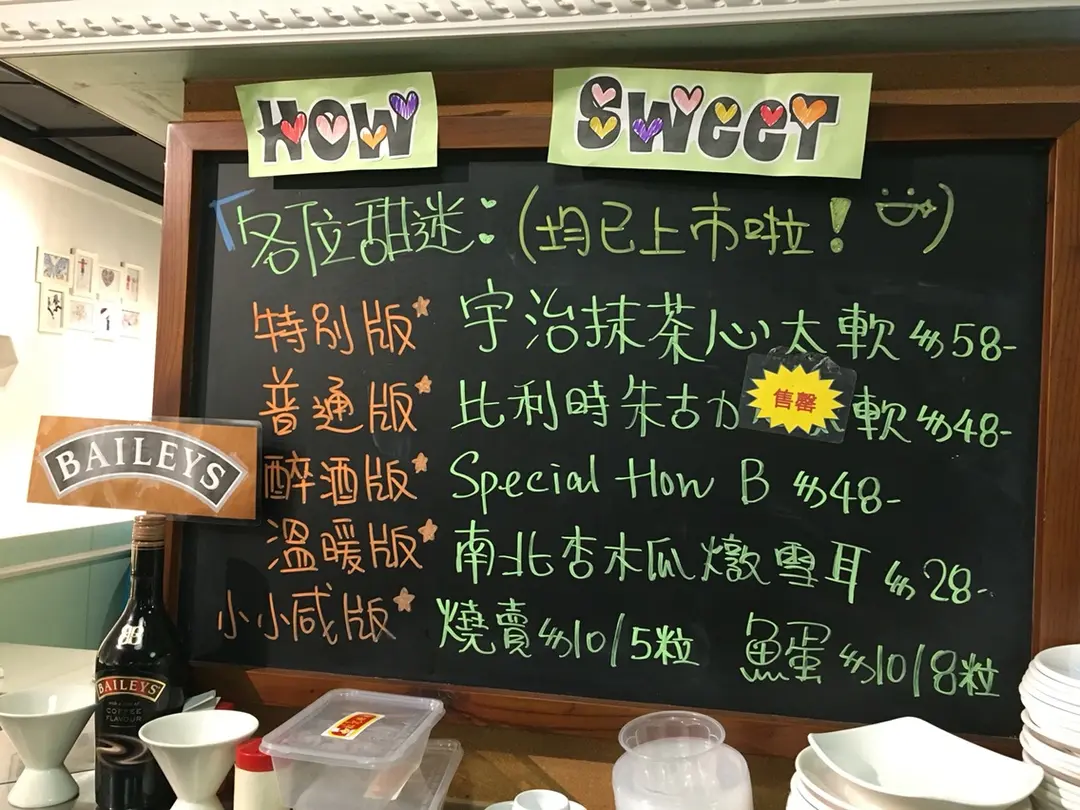 HOW SWEET
「各位甜迷：(均已上市啦！)
特別版 宇治抹茶心太軟 $58-
普通版 比利時朱古力 軟 $48-
售罄
醉酒版 Special How B $48-
溫暖版 南北杏木瓜燉雪耳 $28-
小小咸版 燒賣 $10/5粒 魚蛋 $10/8粒
BAILEYS
BAILEYS
COFFEE
FLAVOUR